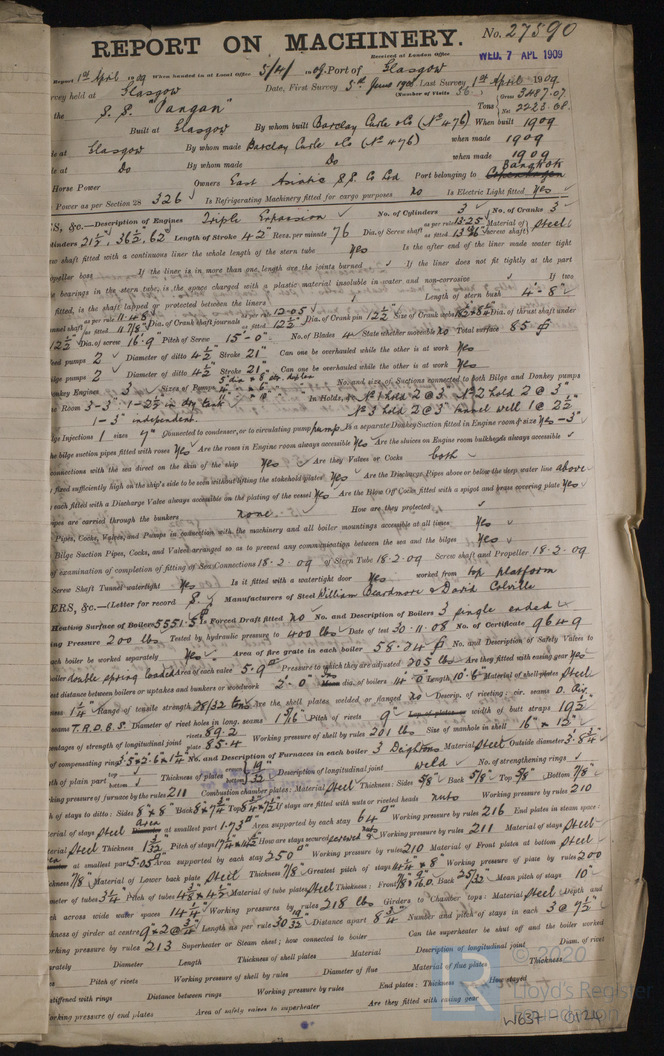 No. 27590
REPORT ON MACHINERY.
Received at London Office WED. 7 APL 1909
Report 1st April 1909 When handed in at Local Office 5/4/1909 Port of Glasgow
Survey held at Glasgow Date, First Survey 5th June 1908 Last Survey 1st April 1909
(Number of Visits 56)
the S.S. "Pangan" Tons Gross 3487.07 Net 2223.08
Built at Glasgow By whom built Barclay Curle & Co (No 476) When built 1909
Glasgow By whom made Barclay Curle & Co (No 476) when made 1909
Do By whom made Do when made 1909
Horse Power Owners East Asiatic S.S. Co Ltd Port belonging to Copenhagen Bangkok
Power as per Section 28 326 Is Refrigerating Machinery fitted for cargo purposes no Is Electric Light fitted Yes
S, &c.—Description of Engines Triple Expansion No. of Cylinders 3 No. of Cranks 3
21½", 36½", 62" Length of Stroke 42" Revs. per minute 76 Dia. of Screw shaft as per rule 13.25 Material of screw shaft Steel
shaft fitted with a continuous liner the whole length of the stern tube Yes Is the after end of the liner made water tight
propeller boss If the liner is in more than one length are the joints burned If the liner does not fit tightly at the part
bearings in the stern tube, is the space charged with a plastic material insoluble in water and non-corrosive If two
fitted, is the shaft lapped or protected between the liners Length of stern bush 4'-8"
as per rule 11.48 Dia. of Crank shaft journals as per rule 12.05 Dia. of Crank pin 12½" Size of Crank webs Dia. of thrust shaft under
12½" Dia. of screw 16'-9" Pitch of Screw 15'-0" No. of Blades 4 State whether moveable no Total surface 85
Feed pumps 2 Diameter of ditto 4½" Stroke 21" Can one be overhauled while the other is at work Yes
Bilge pumps 2 Diameter of ditto 4½" Stroke 21" Can one be overhauled while the other is at work Yes
Donkey Engines 3 Sizes of Pumps No. and size of Suctions connected to both Bilge and Donkey pumps
Room 3-3" 1-2½" in dry tank In Holds, &c. No 1 hold 2@3" No 2 hold 2@3"
1-3" independent. No 3 hold 2@3" tunnel well 1@2½"
Injections 1 sizes 7" Connected to condenser, or to circulating pump pump Is a separate Donkey Suction fitted in Engine room & size Yes-3"
bilge suction pipes fitted with roses Yes Are the roses in Engine room always accessible Yes Are the sluices on Engine room bulkheads always accessible
connections with the sea direct on the skin of the ship Yes Are they Valves or Cocks both
fixed sufficiently high on the ship's side to be seen without lifting the stokehold plates Yes Are the Discharge Pipes above or below the deep water line above
each fitted with a Discharge Valve always accessible on the plating of the vessel Yes Are the Blow Off Cocks fitted with a spigot and brass covering plate Yes
pipes are carried through the bunkers none How are they protected
Pipes, Cocks, Valves, and Pumps in connection with the machinery and all boiler mountings accessible at all times Yes
Bilge Suction Pipes, Cocks, and Valves arranged so as to prevent any communication between the sea and the bilges Yes
of examination of completion of fitting of Sea Connections 18-2-09 of Stern Tube 18-2-09 Screw shaft and Propeller 18-2-09
Screw Shaft Tunnel watertight Yes Is it fitted with a watertight door Yes worked from top platform
ERS, &c.—(Letter for record S) Manufacturers of Steel William Beardmore & David Colville
Heating Surface of Boilers 5551.5 Is Forced Draft fitted no No. and Description of Boilers 3 single ended
Working Pressure 200 lbs Tested by hydraulic pressure to 400 lbs Date of test 30.11.08 No. of Certificate 9649
each boiler be worked separately Yes Area of fire grate in each boiler 58.24 No. and Description of Safety Valves to
boiler double spring loaded Area of each valve 5.9 Pressure to which they are adjusted 205 lbs Are they fitted with easing gear Yes
distance between boilers or uptakes and bunkers or woodwork 2'-0" dia. of boilers 14'-0" Length 10'-6" Material of shell plates Steel
1¼" Range of tensile strength 28/32 tons Are the shell plates welded or flanged no Descrip. of riveting: cir. seams
seams T.R.D.B.S. Diameter of rivet holes in long. seams Pitch of rivets 9" width of butt straps 19½"
percentages of strength of longitudinal joint rivets 89.2 plate 85.4 Working pressure of shell by rules 201 lbs Size of manhole in shell 16" x 12"
of compensating ring No. and Description of Furnaces in each boiler 3 Deightons Material Steel Outside diameter 3'-8¾"
of plain part Thickness of plates Description of longitudinal joint weld No. of strengthening rings
Working pressure of furnace by the rules 211 Combustion chamber plates: Material Steel Thickness: Sides 5/8" Back 5/8" Top 5/8" Bottom 7/8"
of stays to ditto: Sides 8"x8" Back If stays are fitted with nuts or riveted heads nuts Working pressure by rules 210
Material of stays Steel area at smallest part 1.73 Area supported by each stay 64 Working pressure by rules 216 End plates in steam space:
Steel Thickness Pitch of stays How are stays secured screwed Working pressure by rules 211 Material of stays Steel
at smallest part 5.05 Area supported by each stay 250 Working pressure by rules 210 Material of Front plates at bottom Steel
thickness 7/8" Material of Lower back plate Steel Thickness 7/8" Greatest pitch of stays Working pressure of plate by rules 200
Diameter of tubes 3¼" Pitch of tubes Material of tube plates Steel Thickness: Front Back 25/32" Mean pitch of stays 10"
across wide water spaces 14¼" Working pressures by rules 218 lbs Girders to Chamber tops: Material Steel Depth and
thickness of girder at centre Length as per rule Distance apart 8¾" Number and pitch of stays in each 3@7½"
Working pressure by rules 213 Superheater or Steam chest; how connected to boiler Can the superheater be shut off and the boiler worked
separately Diameter Length Thickness of shell plates Material Description of longitudinal joint Diam. of rivet
Pitch of rivets Working pressure of shell by rules Diameter of flue Material of flue plates Thickness
stiffened with rings Distance between rings Working pressure by rules End plates: Thickness How stayed
Working pressure of end plates Area of safety valves to superheater Are they fitted with easing gear
© 2020
Lloyd's Register
Foundation
W637-0124